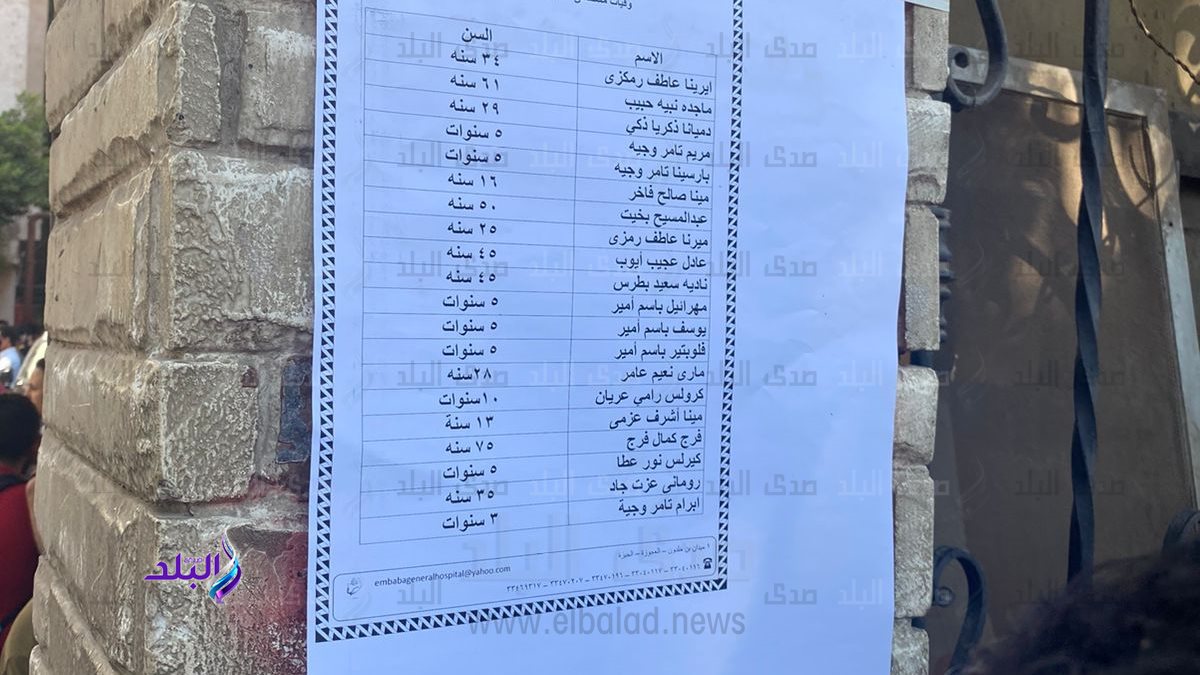 وفيات
الاسم السن
ايرينا عاطف رمكزى ٣٤ سنه
ماجده نبيه حبيب ٦١ سنه
دميانا ذكريا ذكي ٢٩ سنه
مريم تامر وجيه ٥ سنوات
بارسينا تامر وجيه ٥ سنوات
مينا صالح فاخر ١٦ سنه
عبدالمسيح بخيت ٥٠ سنه
ميرنا عاطف رمزى ٢٥ سنه
عادل عجيب أيوب ٤٥ سنه
ناديه سعيد بطرس ٤٥ سنه
مهرائيل باسم أمير ٥ سنوات
يوسف باسم أمير ٥ سنوات
فلوبتير باسم أمير ٥ سنوات
مارى نعيم عامر ٢٨سنه
كرولس رامي عريان ١٠سنوات
مينا أشرف عزمى ١٣ سنة
فرج كمال فرج ٧٥ سنه
كيرلس نور عطا ٥ سنوات
رومانى عزت جاد ٣٥ سنه
ابرام تامر وجية ٣ سنوات
١ ميدان بن خلدون – العجوزة – الجيزة
٣٣٠٤٠١١٦ – ٣٣٠٤٠١١٧ – ٣٣٤٧٠١٩٦ – ٣٣٤٧٠٢٠٧ – ٣٣٤٦٩٣١٧
embabageneralhospital@yahoo.com
صدى البلد
www.elbalad.news